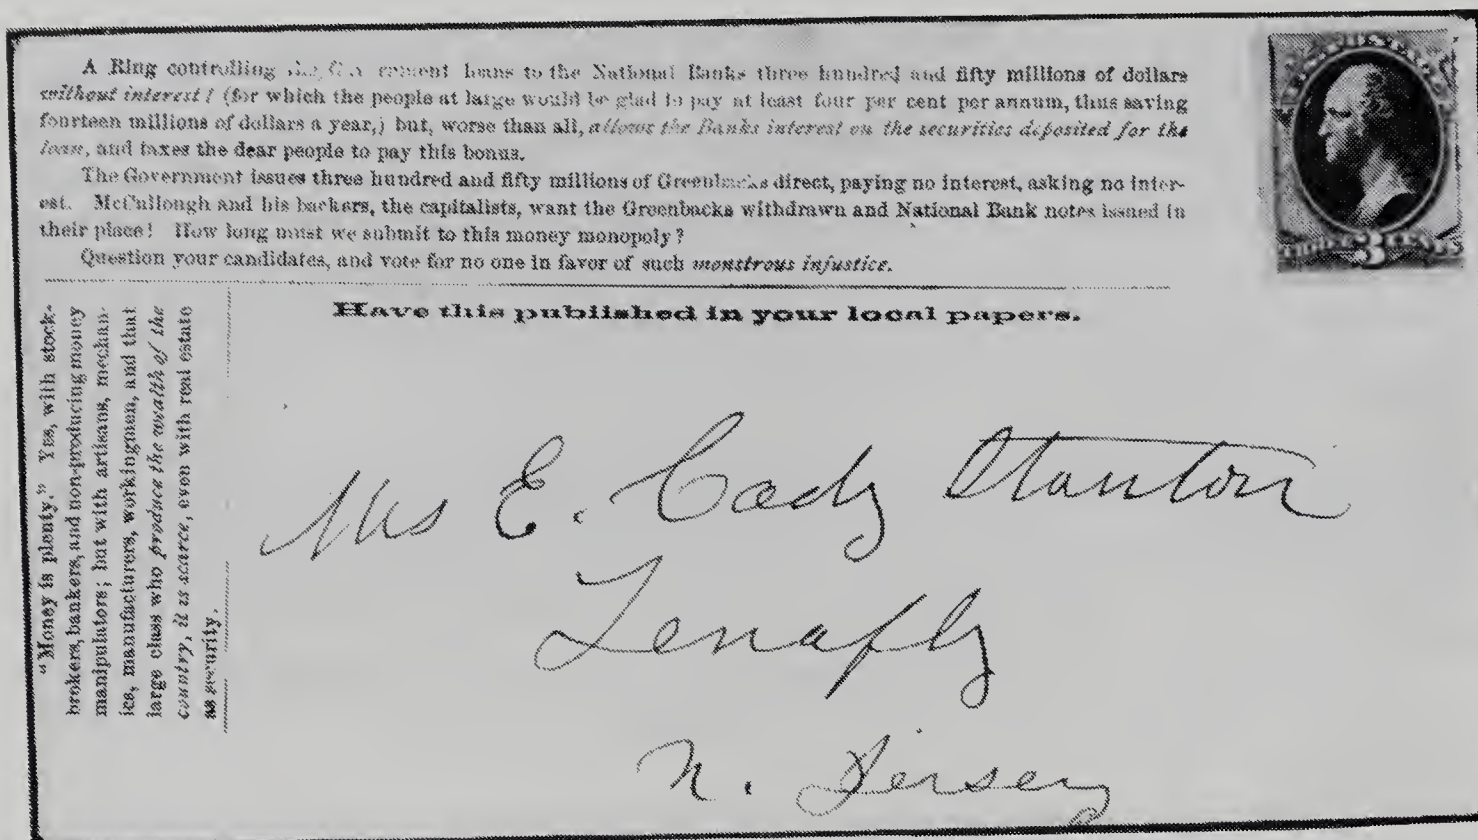 A Ring controlling the Government loans to the National Banks three hundred and fifty millions of dollars
without interest! (for which the people at large would be glad to pay at least four per cent per annum, thus saving
fourteen millions of dollars a year,) but, worse than all, allows the Banks interest on the securities deposited for the
loan, and taxes the dear people to pay this bonus.
The Government issues three hundred and fifty millions of Greenbacks direct, paying no interest, asking no inter-
est. McCullough and his backers, the capitalists, want the Greenbacks withdrawn and National Bank notes issued in
their place! How long must we submit to this money monopoly?
Question your candidates, and vote for no one in favor of such monstrous injustice.
Have this published in your local papers.
"Money is plenty." Yes, with stock-
brokers, bankers, and non-producing money
manipulators; but with artisans, mechan-
ics, manufacturers, workingmen, and that
large class who produce the wealth of the
country, it is scarce, even with real estate
as security.
Mrs E. Cady Stanton
Tenafly
N. Jersey
3 CENTS